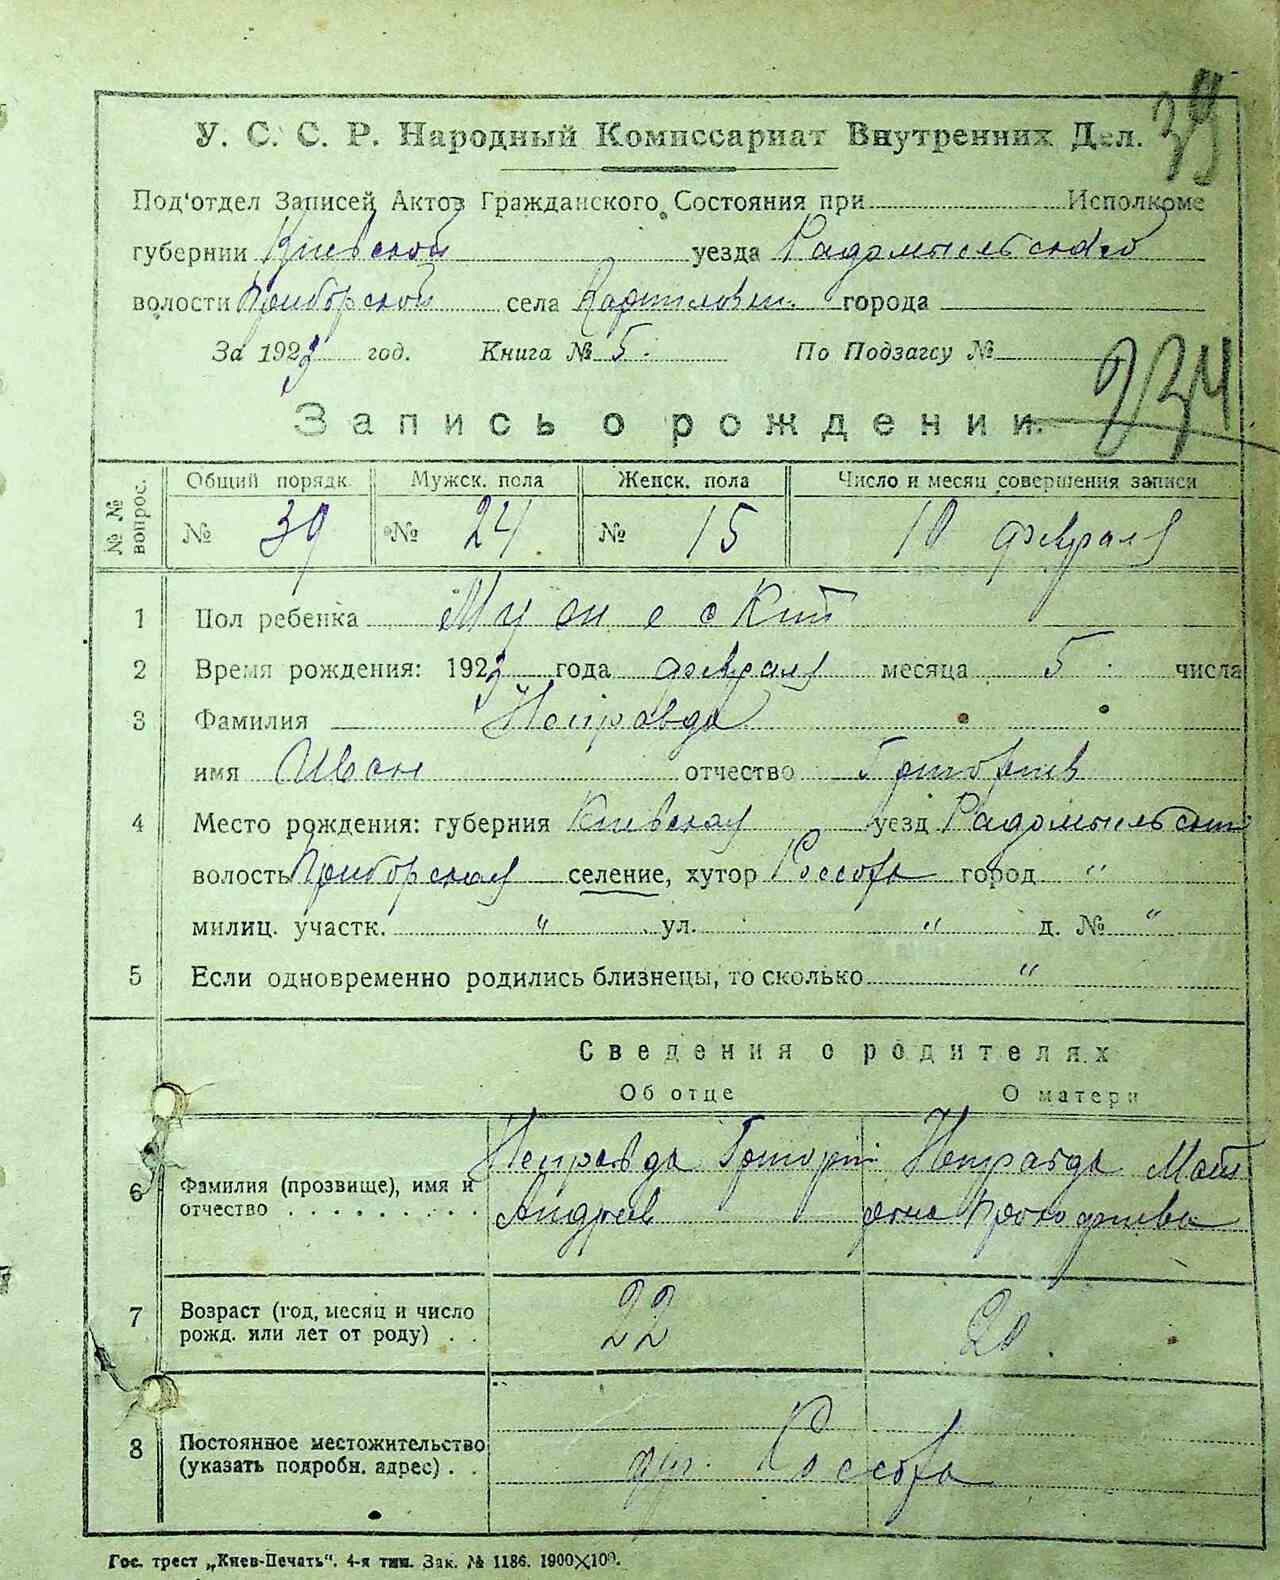 39
У. С. С. Р. Народный Комиссариат Внутренних Дел.
Под'отдел Записей Актов Гражданского Состояния при Исполкоме
губернии Киевской уезда Радомысльского
волости Приборской села Карпиловки города
За 1923 год. Книга № 5. По Подзагсу №
234
Запись о рождении.
№№ вопрос. Общий порядк. Мужск. пола Женск. пола Число и месяц совершения записи
№ 39 № 24 № 15 10 февраля
1 Пол ребенка Мужеский
2 Время рождения: 1923 года февраля месяца 5 числа
3 Фамилия Неправда
имя Иван отчество Григориев
4 Место рождения: губерния Киевская уезд Радомысльский
волость Приборская селение, хутор город "
милиц. участк. " ул. " д. № "
5 Если одновременно родились близнецы, то сколько "
Сведения о родителях
Об отце О матери
6 Фамилия (прозвище), имя и отчество Неправда Григорий Андреев Неправда Матрона Прокофиева
7 Возраст (год, месяц и число рожд. или лет от роду) 22 20
8 Постоянное местожительство (указать подробн. адрес)
Гос. трест „Киев-Печать". 4-я тип. Зак. № 1186. 1900×100.